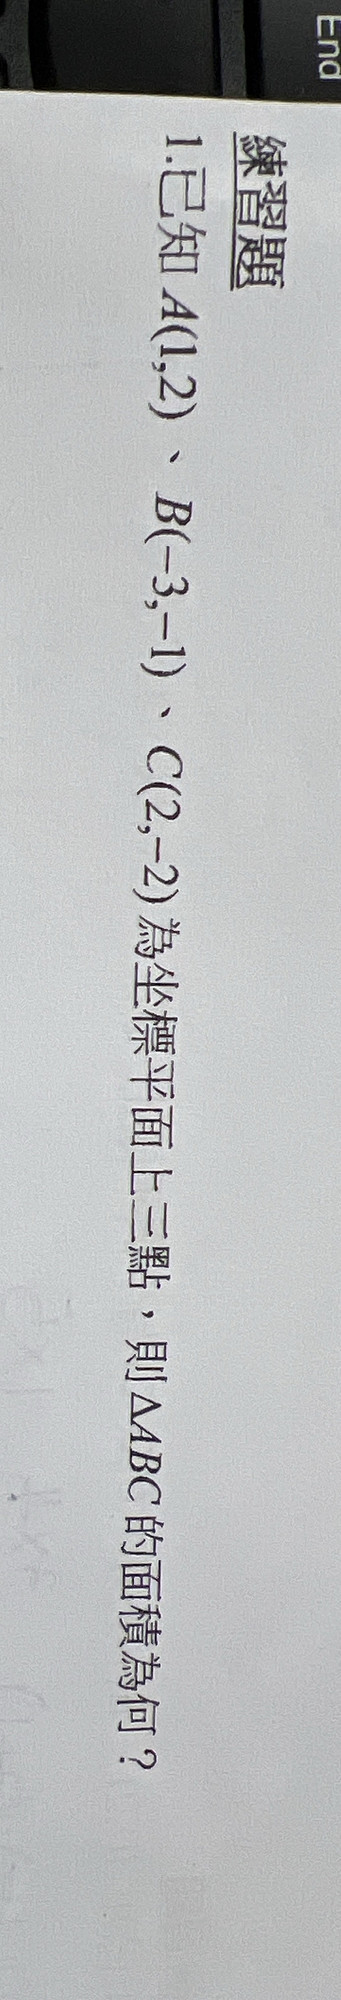 End
練習題
1.已知 A(1,2)、B(−3,−1)、C(2,−2) 為坐標平面上三點，則 △ABC 的面積為何？